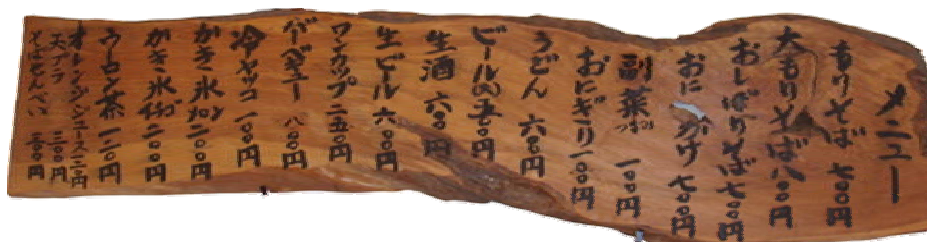 メニュー
もりそば 七〇〇円
大もりそば 八〇〇円
おしぼりそば 七〇〇円
おにかけ 七〇〇円
副菜 一〇〇円
おにぎり 一〇〇円
うどん 六〇〇円
ビール 五〇〇円
生酒 六〇〇円
生ビール 六〇〇円
ワンカップ 二五〇円
八〇〇円
冷ヤッコ 一〇〇円
かき氷 二〇〇円
かき氷 二〇〇円
ウーロン茶 一二〇円
オレンジジュース
天プラ 三〇〇円
そばせんべい 三〇〇円